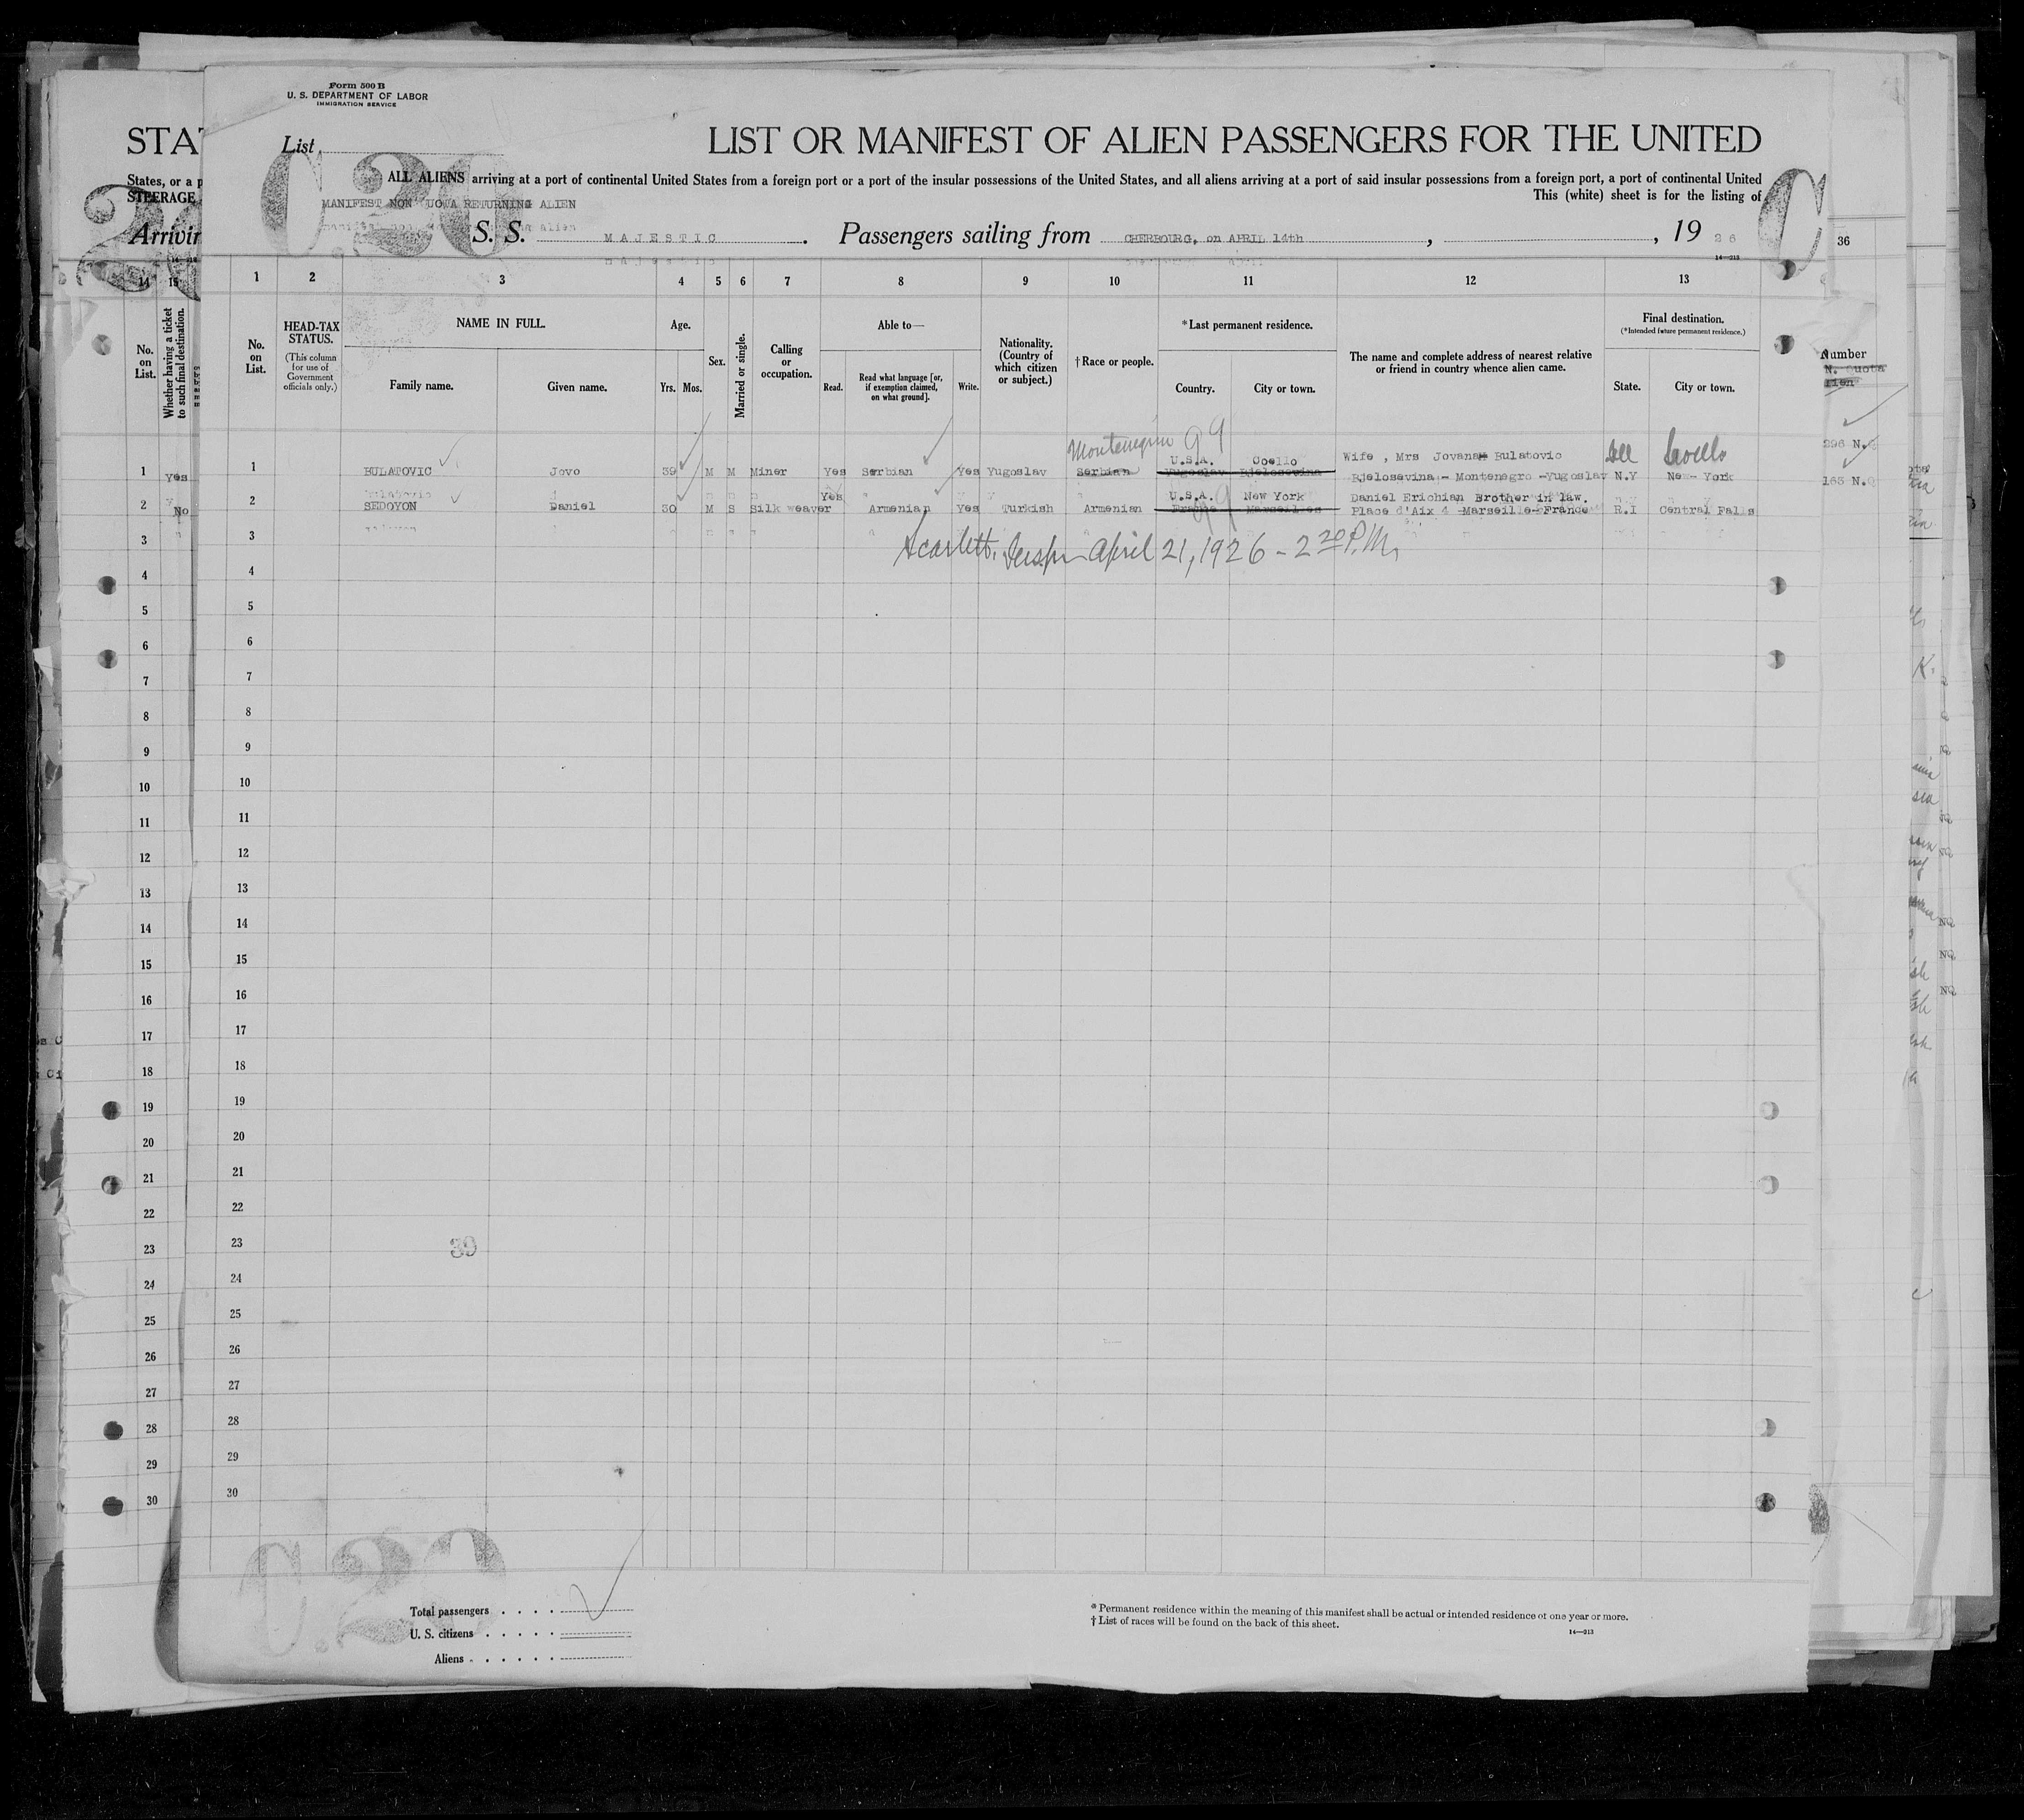 Form 500 B
U. S. DEPARTMENT OF LABOR
IMMIGRATION SERVICE
STA
List
LIST OR MANIFEST OF ALIEN PASSENGERS FOR THE UNITED
C.26
C
States, or a p
ALL ALIENS arriving at a port of continental United States from a foreign port or a port of the insular possessions of the United States, and all aliens arriving at a port of said insular possessions from a foreign port, a port of continental United
STEERAGE
This (white) sheet is for the listing of
MANIFEST NON UOTA RETURNING ALIEN
Arrivin
S. S. MAJESTIC. Passengers sailing from CHERBOURG, on APRIL 14th, , 19 26
14—213
36
14 15
1 2 3 4 5 6 7 8 9 10 11 12 13
No. on List.
Whether having a ticket to such final destination.
No. on List.
HEAD-TAX STATUS.
(This column for use of Government officials only.)
NAME IN FULL.
Family name.
Given name.
Age.
Yrs. Mos.
Sex.
Married or single.
Calling or occupation.
Able to—
Read.
Read what language [or, if exemption claimed, on what ground].
Write.
Nationality. (Country of which citizen or subject.)
† Race or people.
*Last permanent residence.
Country.
City or town.
The name and complete address of nearest relative or friend in country whence alien came.
Final destination.
(*Intended future permanent residence.)
State.
City or town.
Number
N. Quota
lien
Montenegrin
U.S.A. Coello
Wife , Mrs Jovana Bulatovic
Ill Coello
296 N.Q
1 Yes
1 BULATOVIC Jovo 39 M M Miner Yes Serbian Yes Yugoslav Serbian Yugoslav Bjelosevina Bjelosevina - Montenegro -Yugoslav N.Y New - York
165 N.Q
Yes U.S.A. New York Daniel Erichian Brother in law.
2 No
2 SEDOYON Daniel 30 M S Silk weaver Armenian Yes Turkish Armenian France Marseilles Place d'Aix 4 -Marseille-France R.I Central Falls
Scarlett. Inspr April 21, 1926 - 2 20 P.M.
3 3
4 4
5 5
6 6
7 7
8 8
9 9
10 10
11 11
12 12
13 13
14 14
15 15
16 16
17 17
18 18
19 19
20 20
21 21
22 22
23 23
39
24 24
25 25
26 26
27 27
28 28
29 29
30 30
Total passengers
U. S. citizens
Aliens
* Permanent residence within the meaning of this manifest shall be actual or intended residence of one year or more.
† List of races will be found on the back of this sheet.
14—213